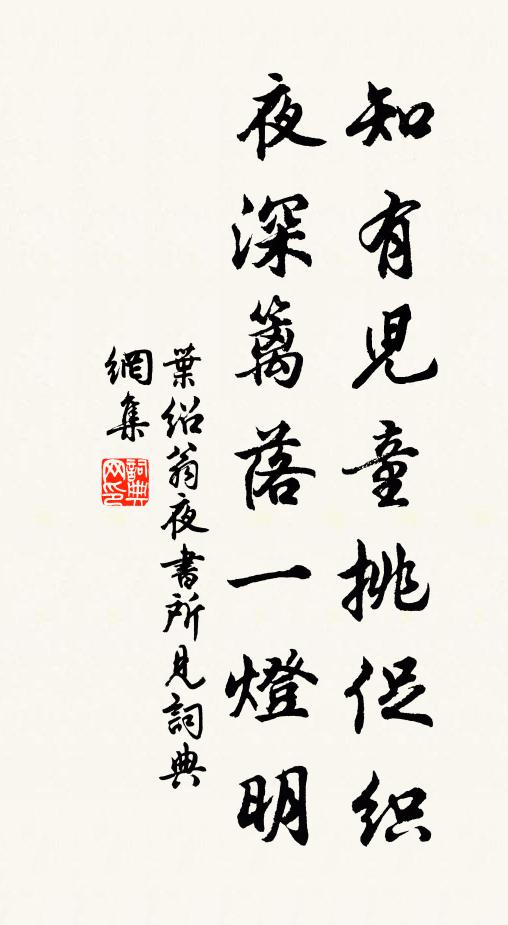 知有児童挑促织
夜深篱落一燈明
葉紹翁夜書所見詞典
網集
詞典
网印